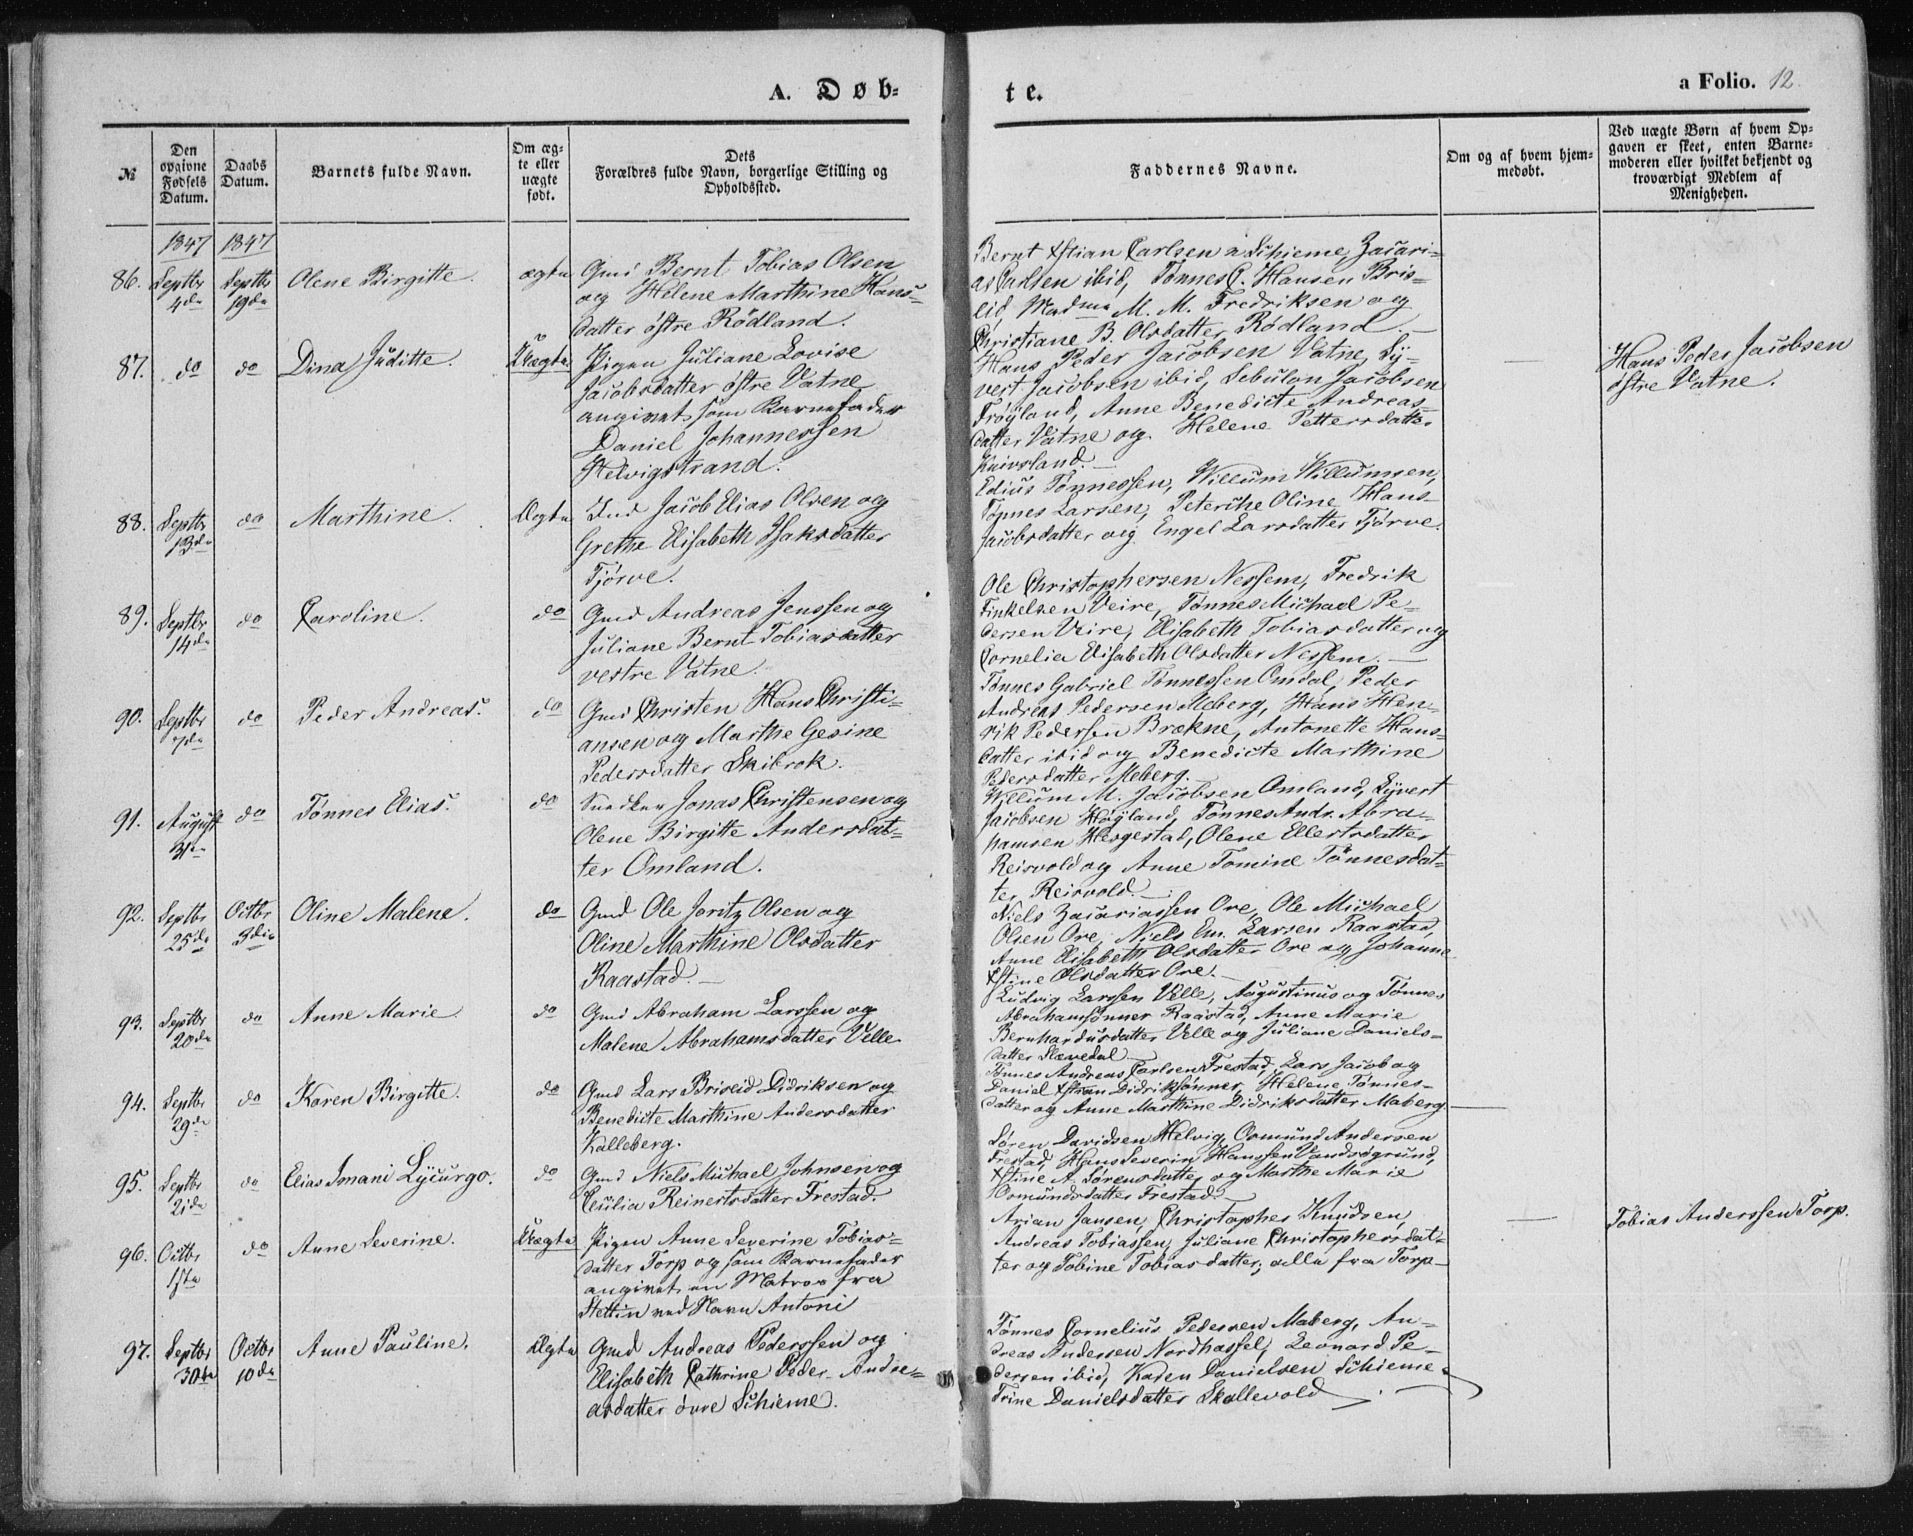 A. Døb-
te.
a Folio. 12.
№
Den opgivne Fødsels Datum.
Daabs Datum.
Barnets fulde Navn.
Om ægte eller uægte født.
Dets
Forældres fulde Navn, borgerlige Stilling og
Opholdssted.
Faddernes Navne.
Om og af hvem hjem-
medøbt.
Ved uægte Børn af hvem Op-
gaven er skeet, enten Barne-
moderen eller hvilket bekjendt og
troværdigt Medlem af
Menigheden.
1847 1847
86. Septbr 4de Septbr 19de Olene Birgitte. ægte
Gmd Bernt Tobias Olsen
og Helene Marthine Hans-
datter østre Rödland.
Bernt Xstian Carlsen n. Schieme, Zacari-
as Carlsen ibid, Tønnes C. Hansen Bris-
eid, Madme M. M. Fredriksen og
Christiane B. Olsdatter Rødland.
87. do do Dina Juditte. Uægte
Pigen Juliane Lovise
Jacobsdatter østre Vatne
angivet som Barnefader
Daniel Johannessen
Helvigstrand.
Hans Peder Jacobsen Vatne, Sy-
vert Jacobsen ibid, Sebulon Jacobsen
Frøyland, Anne Benedicte Andreas-
datter Vatne og Helene Pettersdatter
Knivsland.
Hans Peder Jacobsen
østre Vatne.
88. Septbr 13de do Marthine. Ægte
Ind Jacob Elias Olsen og
Grethe Elisabeth Isaksdatter
Tjørve.
Edius Tønnessen, Willum Willumsen,
Tønnes Larsen, Peterche Oline Hans-
Jacobsdatter og Engel Larsdatter Tjørve.
89. Septbr 14de do Caroline. do
Gmd Andreas Jenssen og
Juliane Bernt Tobiasdatter
vestre Vatne.
Ole Christophersen Nessem, Fredrik
Finkelsen Veire, Tønnes Michael Pe-
dersen Veire, Elisabeth Tobiasdatter og
Cornelia Elisabeth Olsdatter Nessem.
90. Septbr 7de do Peder Andreas. do
Gmd Christen Hans Christi-
ansen og Marthe Gesine
Pedersdatter Skibrok.
Tønnes Gabriel Tønnessen Omdal, Peder
Andreas Pedersen Meberg, Hans Hen-
rik Pedersen Brækne, Antonette Hans-
datter ibid og Benedicte Marthine
Pedersdatter Meberg.
91. August 31te do Tønnes Elias. do
Snedker Jonas Christensen og
Olene Birgitte Andersdat-
ter Omland.
Willum M. Jacobsen Omland, Syvert
Jacobsen Høyland, Tønnes Andr. Abra-
hamsen Hesgestad, Olene Ellertsdatter
Reisvold og Anne Tomine Tönnesdat-
ter Reisvold.
92. Septbr 25de Octbr 3die Oline Malene. do
Gmd Ole Joritz Olsen og
Oline Marthine Olsdatter
Raastad.
Niels Zacariassen Ore, Ole Michael
Olsen Ore, Niels Em. Larsen Raastad,
Anne Elisabeth Olsdatter Ore og Johanne
Xstine Olsdatter Ore.
93. Septbr 20de do Anne Marie do
Gmd Abraham Larssen og
Malene Abrahamsdatter Velle
Ludvig Larssen Velle, Augustinus og Tønnes
Abrahamsønner Raastad, Anne Marie
Bernhardusdatter Velle og Juliane Daniels-
datter Slævedal
94. Septbr 29de do Karen Birgitte. do
Gmd Lars Briseid Didriksen og
Benedicte Marthine Andersdatter
Kalleberg.
Tønnes Andreas Carlsen Frestad, Lars Jacob og
Daniel Xstian Didriksønner, Helene Tønnes-
datter og Anne Marthine Didriksdatter Maberg
95. Septbr 21de do Elias Imani Lycurgo. do
Gmd Niels Michael Johnsen og
Cecilia Reinertsdatter Frestad.
Søren Davidsen Helvig, Osmund Andersen
Frestad, Hans Severin Hanssen Vandsøgrund,
Xstine A. Sørensdatter og Marthe Marie
Osmundsdatter Frestad.
96. Octbr 1ste do Anne Severine. Uægte
Pigen Anne Severine Tobias-
datter Torp og som Barnefader
angivet en Matros fra
Stettin ved Navn Antoni
Arian Jansen, Christopher Knudsen,
Andreas Tobiassen, Juliane Christophersdat-
ter og Tobine Tobiasdatter, alle fra Torp
Tobias Anderssen Torp.
97. Septbr 30te Octbr 10de Anne Pauline. Ægte
Gmd Andreas Pederssen og
Elisabeth Cathrine Peder Andre-
asdatter övre Schieme.
Tønnes Cornelius Pedersen Maberg, An-
dreas Andersen Nordhassel, Leonard Pe-
dersen ibid, Karen Danielsen Schieme
Trine Danielsdatter Skollevold